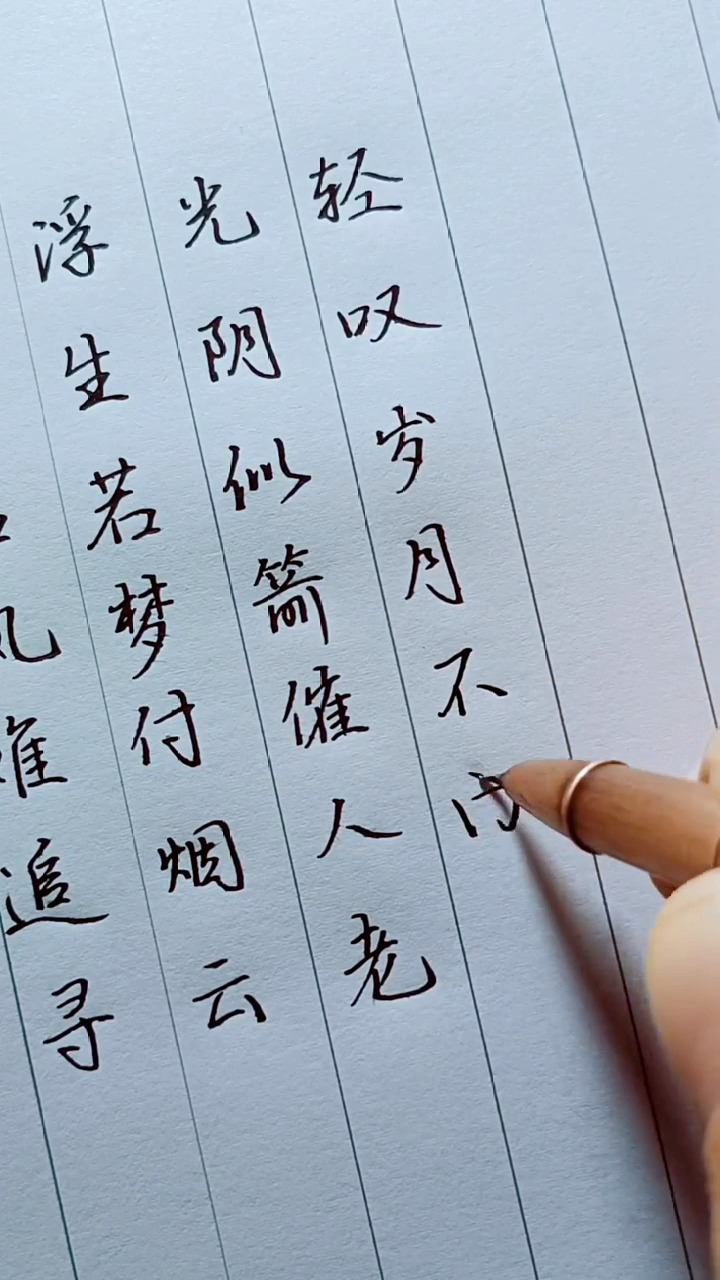 风难追寻
浮生若梦付烟云
光阴似箭催人老
轻叹岁月不